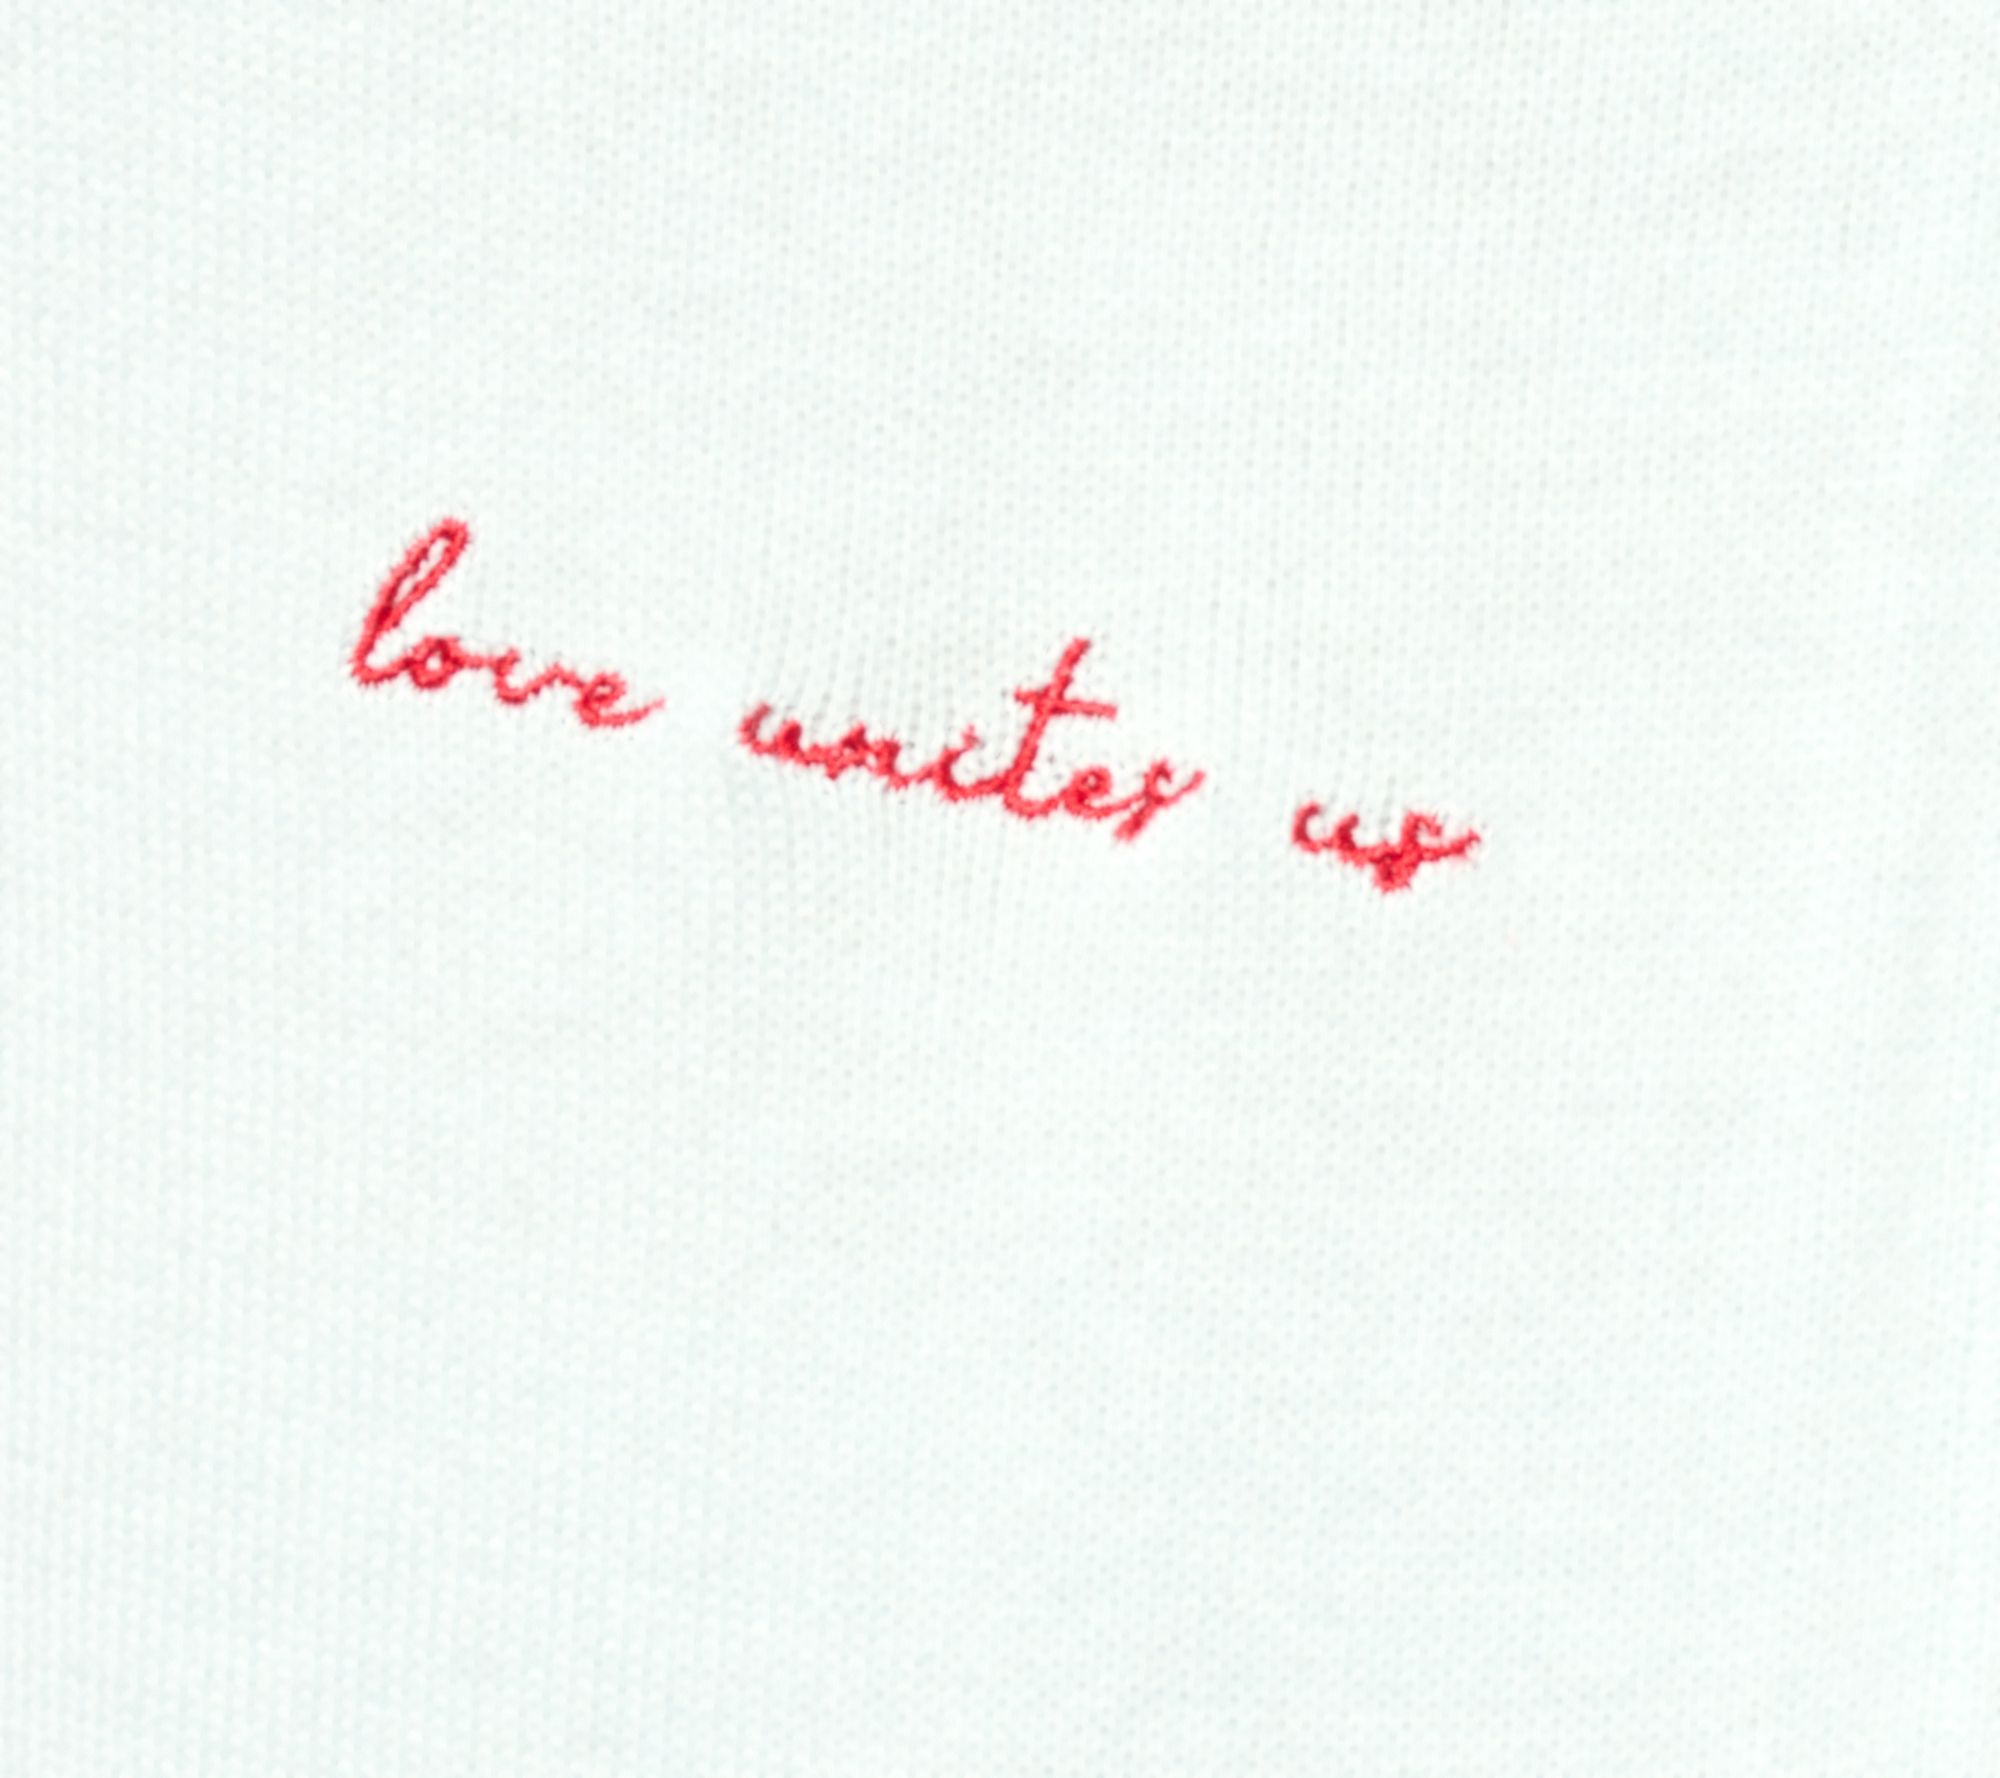 love unites us